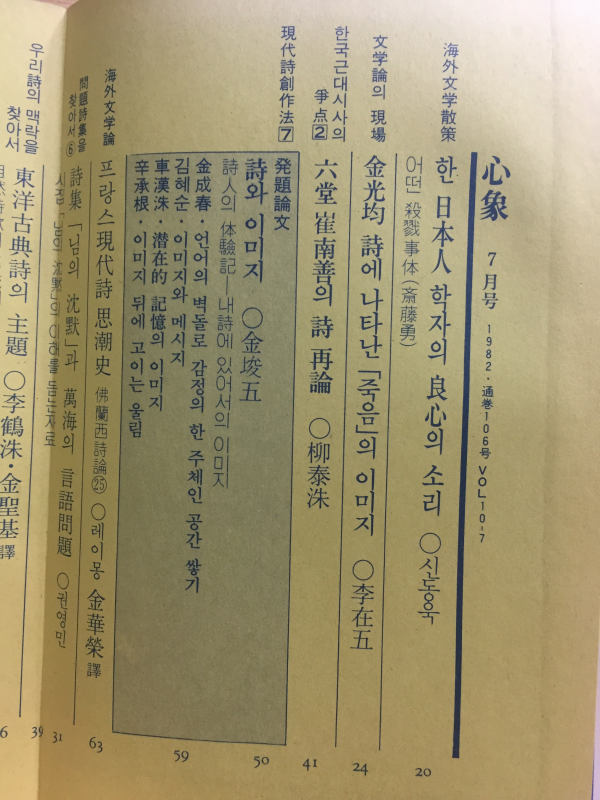 心象 7月号 1982·通巻106号 VOL 10-7
海外文学散策
한 日本人 학자의 良心의 소리 ○신동욱 20
어떤「殺戮事体(斎藤勇)
文学論의 現場
金光均 詩에 나타난「죽음」의 이미지 ○李在五 24
한국근대시사의 爭点②
六堂 崔南善의 詩 再論 ○柳泰洙 41
現代詩創作法⑦
発題論文
詩와 이미지 ○金埈五 50
詩人의 体験記─내詩에 있어서의 이미지
金成春·언어의 벽돌로 감정의 한 주체인 공간 쌓기 59
김혜순·이미지와 메시지
車漢洙·潜在的 記憶의 이미지
辛承根·이미지 뒤에 고이는 울림
海外文学論
프랑스現代詩 思潮史 佛蘭西詩論㉕ ○레이몽 金華榮 譯 63
問題詩集을 찾아서⑥
詩集「님의 沈默」과 萬海의 言語問題 ○권영민 31
시집「님의 沈默」의 이해를 돕는자료
우리詩의 맥락을 찾아서
東洋古典詩의 主題 ○李鶴洙·金聖基 譯 39
6